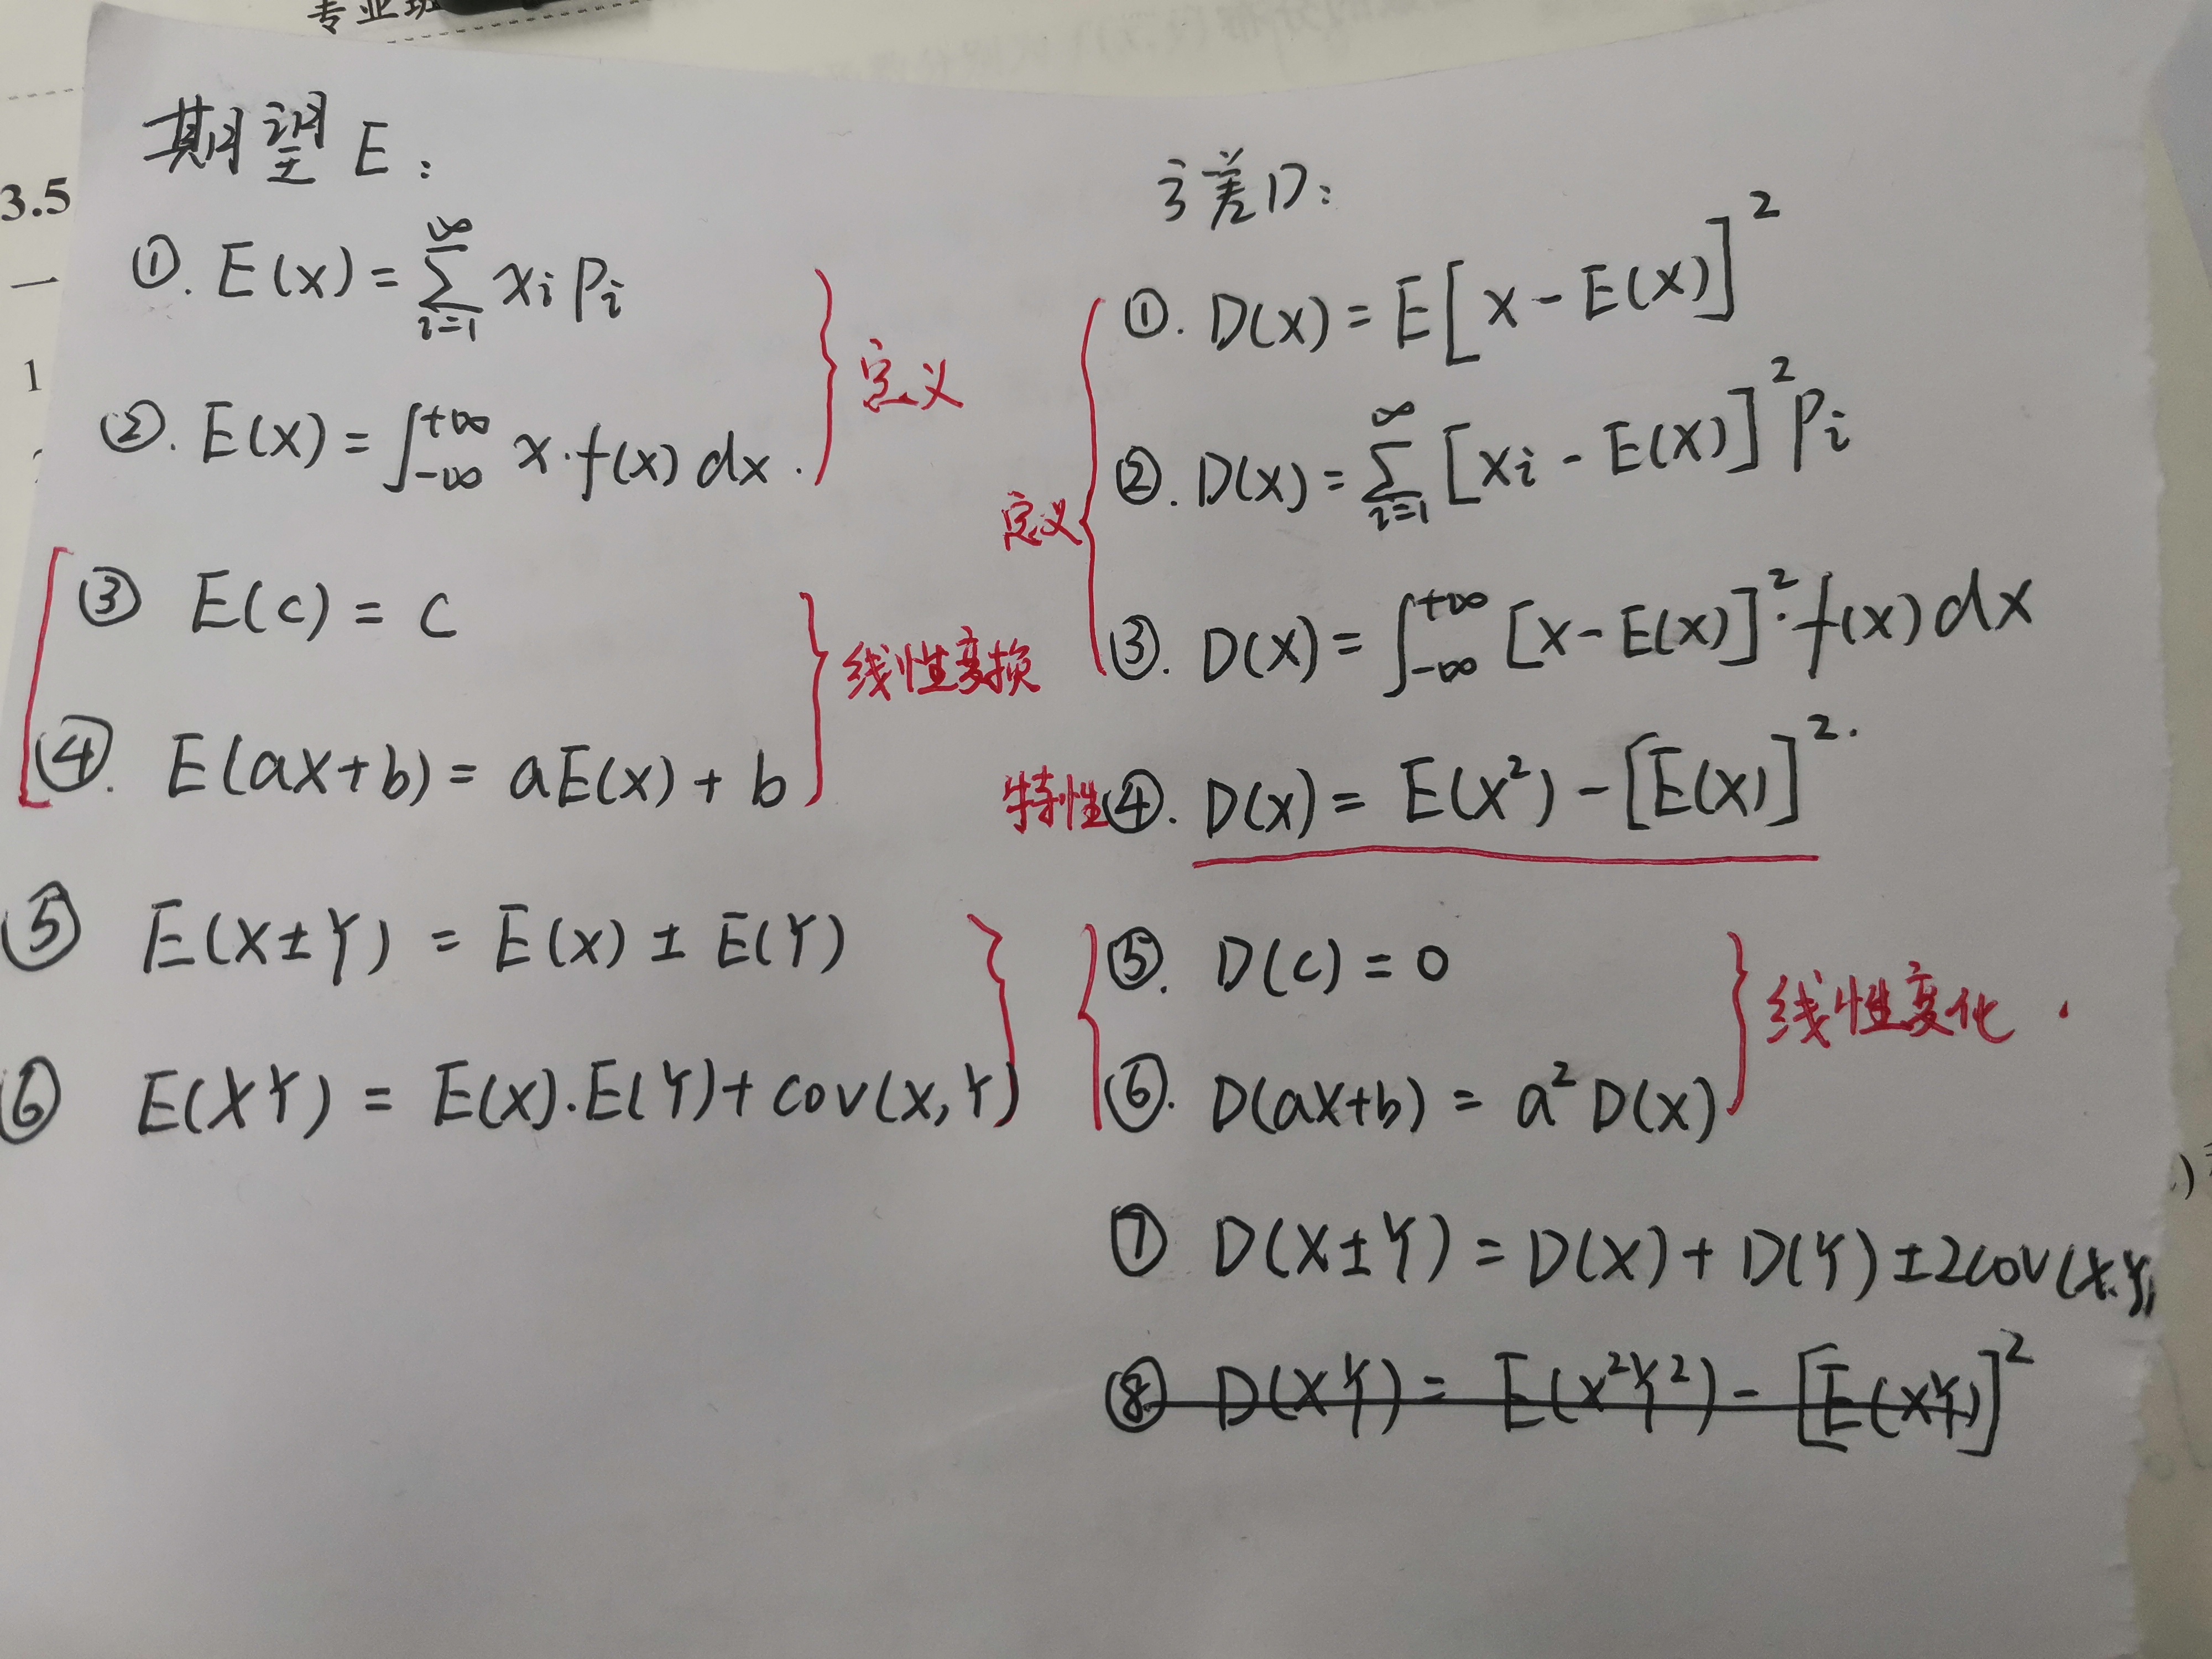 专业班
3.5
一
1
期望 E：
①. E(x) = ∑_{i=1}^{∞} x_i p_i
②. E(x) = ∫_{-∞}^{+∞} x·f(x) dx.
定义
③ E(c) = c
④. E(ax+b) = aE(x) + b
线性变换
⑤ E(X±Y) = E(x) ± E(Y)
⑥ E(XY) = E(x)·E(Y) + cov(x,Y)
方差D：
①. D(x) = E[x - E(x)]²
②. D(x) = ∑_{i=1}^{∞} [x_i - E(x)]² p_i
③. D(x) = ∫_{-∞}^{+∞} [x - E(x)]²·f(x) dx
定义
特性④. D(x) = E(x²) - [E(x)]².
⑤. D(c) = 0
⑥. D(ax+b) = a² D(x)
线性变化.
⑦ D(X±Y) = D(X) + D(Y) ± 2cov(x.y)
⑧ D(XY) = E(x²Y²) - [E(XY)]²